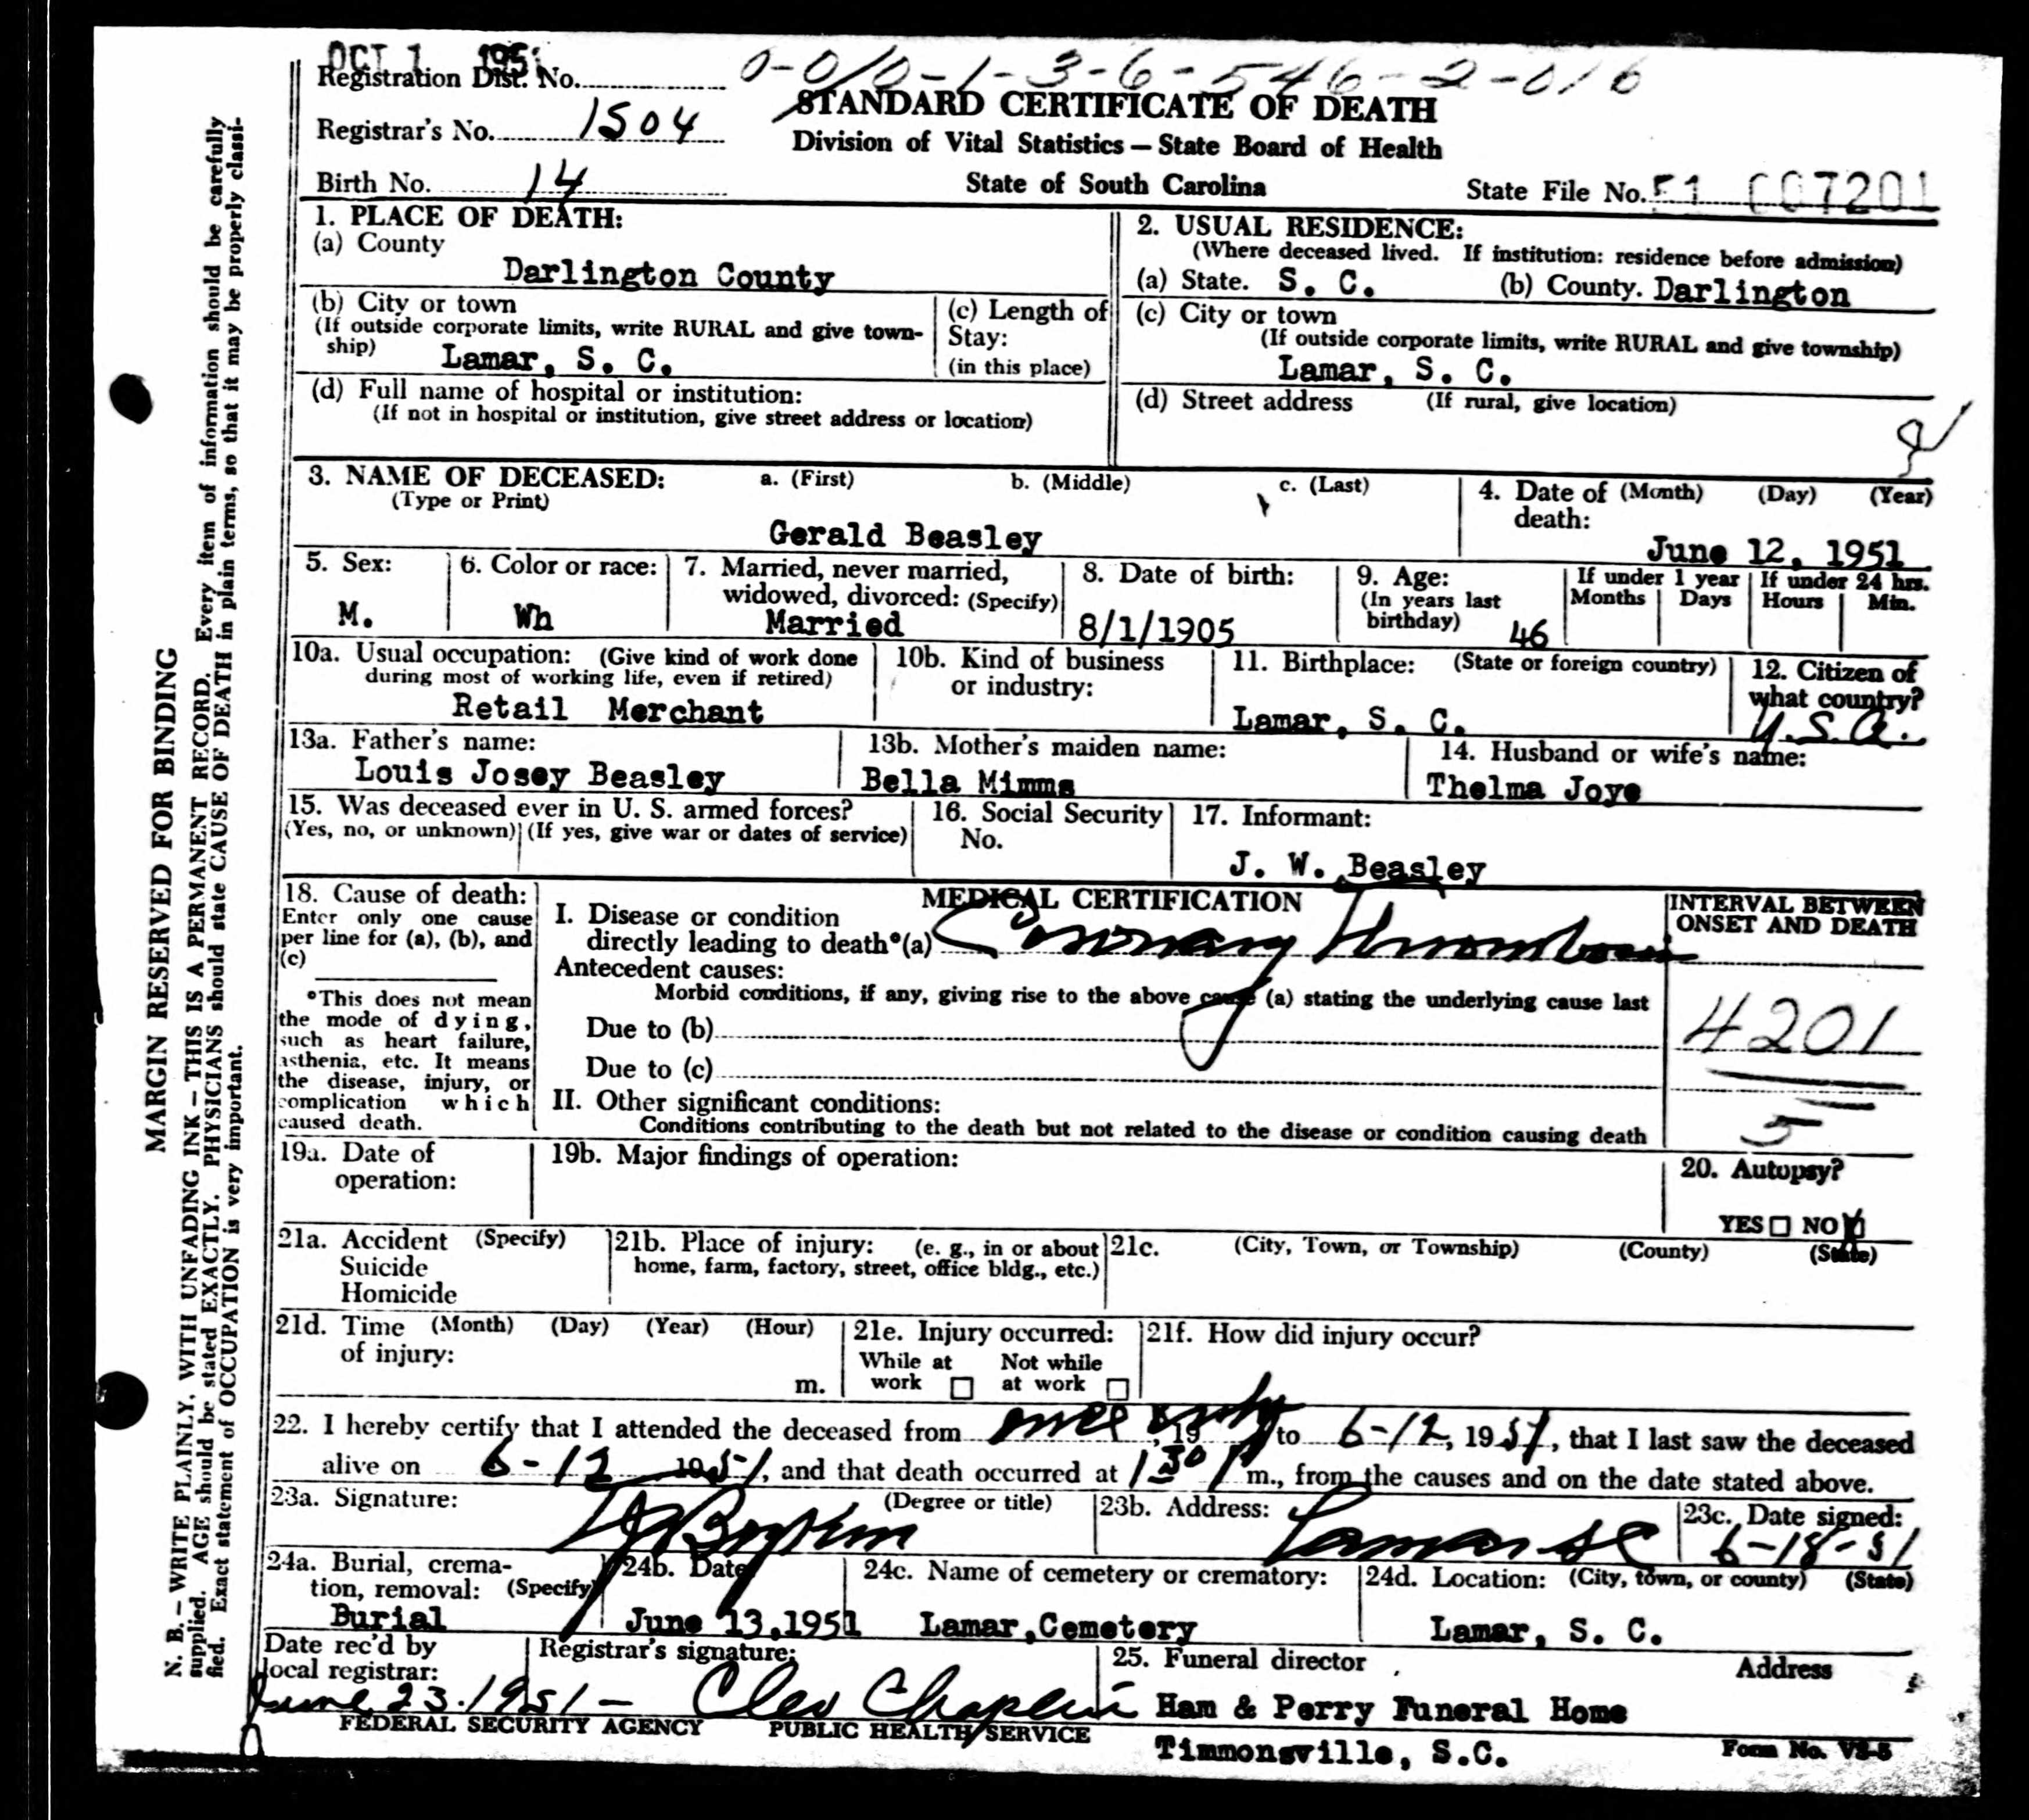 OCT 1 195
0-010-1-3-6-546-2-016
Registration Dist. No.
STANDARD CERTIFICATE OF DEATH
Registrar's No. 1504
Division of Vital Statistics — State Board of Health
Birth No. 14
State of South Carolina
State File No. 51 007201
1. PLACE OF DEATH:
(a) County
Darlington County
2. USUAL RESIDENCE:
(Where deceased lived. If institution: residence before admission)
(a) State. S. C. (b) County. Darlington
(b) City or town
(If outside corporate limits, write RURAL and give town-
ship) Lamar, S. C.
(c) Length of
Stay:
(in this place)
(c) City or town
(If outside corporate limits, write RURAL and give township)
Lamar, S. C.
(d) Full name of hospital or institution:
(If not in hospital or institution, give street address or location)
(d) Street address (If rural, give location)
3. NAME OF DECEASED: a. (First) b. (Middle) c. (Last)
(Type or Print)
Gerald Beasley
4. Date of (Month) (Day) (Year)
death:
June 12, 1951
5. Sex:
M.
6. Color or race:
Wh
7. Married, never married,
widowed, divorced: (Specify)
Married
8. Date of birth:
8/1/1905
9. Age:
(In years last
birthday) 46
If under 1 year
Months Days
If under 24 hrs.
Hours Min.
10a. Usual occupation: (Give kind of work done
during most of working life, even if retired)
Retail Merchant
10b. Kind of business
or industry:
11. Birthplace: (State or foreign country)
Lamar, S. C.
12. Citizen of
what country?
U.S.A.
13a. Father's name:
Louis Josey Beasley
13b. Mother's maiden name:
Bella Mimms
14. Husband or wife's name:
Thelma Joye
15. Was deceased ever in U. S. armed forces?
(Yes, no, or unknown) (If yes, give war or dates of service)
16. Social Security
No.
17. Informant:
J. W. Beasley
18. Cause of death:
Enter only one cause
per line for (a), (b), and
(c)
*This does not mean
the mode of dying,
such as heart failure,
asthenia, etc. It means
the disease, injury, or
complication which
caused death.
MEDICAL CERTIFICATION
I. Disease or condition
directly leading to death*(a) Coronary Thrombosis
Antecedent causes:
Morbid conditions, if any, giving rise to the above cause (a) stating the underlying cause last
Due to (b)
Due to (c)
II. Other significant conditions:
Conditions contributing to the death but not related to the disease or condition causing death
INTERVAL BETWEEN
ONSET AND DEATH
4201
5
19a. Date of
operation:
19b. Major findings of operation:
20. Autopsy?
YES NO X
21a. Accident (Specify)
Suicide
Homicide
21b. Place of injury: (e. g., in or about
home, farm, factory, street, office bldg., etc.)
21c. (City, Town, or Township) (County) (State)
21d. Time (Month) (Day) (Year) (Hour)
of injury:
m.
21e. Injury occurred:
While at Not while
work at work
21f. How did injury occur?
22. I hereby certify that I attended the deceased from once only, 19 to 6-12, 1951, that I last saw the deceased
alive on 6-12 1951, and that death occurred at 1 30 P m., from the causes and on the date stated above.
23a. Signature: (Degree or title)
23b. Address: Lamar SC
23c. Date signed:
6-18-51
24a. Burial, crema-
tion, removal: (Specify)
Burial
24b. Date
June 13, 1951
24c. Name of cemetery or crematory:
Lamar, Cemetery
24d. Location: (City, town, or county) (State)
Lamar, S. C.
Date rec'd by
local registrar:
June 23. 1951 —
Registrar's signature:
Cleo Chaplin
25. Funeral director Address
Ham & Perry Funeral Home
Timmonsville, S.C.
FEDERAL SECURITY AGENCY PUBLIC HEALTH SERVICE
Form No. VS-5
MARGIN RESERVED FOR BINDING
N. B. — WRITE PLAINLY, WITH UNFADING INK — THIS IS A PERMANENT RECORD. Every item of information should be carefully
supplied. AGE should be stated EXACTLY. PHYSICIANS should state CAUSE OF DEATH in plain terms, so that it may be properly classi-
fied. Exact statement of OCCUPATION is very important.